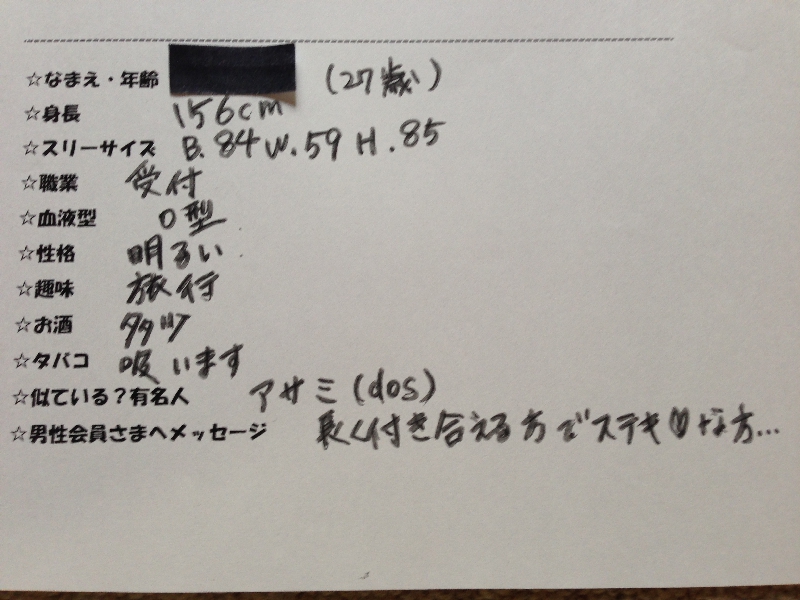 ☆なまえ・年齢 (27歳)
☆身長 156cm
☆スリーサイズ B.84 W.59 H.85
☆職業 受付
☆血液型 O型
☆性格 明るい
☆趣味 旅行
☆お酒
☆タバコ 吸います
☆似ている?有名人 アサミ(dos)
☆男性会員さまへメッセージ 長く付き合える方でステキ♡な方...